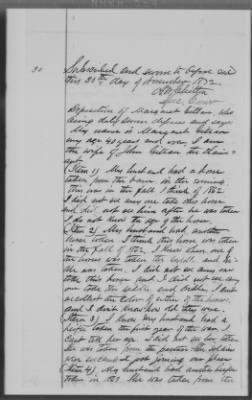 Subscribed and sworn to before me
this 30th day of November 1872
Com
Deposition of Margaret Gillean who
being duly sworn deposes and says
My name is Margaret Gillean
my age 40 years and over I am
the wife of John Gillean the claim
ant
(Item 1) My husband had a horse
taken from the farm in the evening
this was in the fall I think of 186
I did not see any one take this horse
and did not see him after he was taken
I do not know the age of the horse
(Item 2) My husband had another
horse taken I think this horse was taken
in the fall of 186 I knew then
the horse was taken the saddle and bri
dle was taken. I did not see any one
take this horse and I did not see any
one take the saddle and bridle, I don't
recollect the color of either of the horses
and I don't know how old they were.
(Item 3) I know my husband had a
heifer taken the first year of the war I
can't tell her age. I did not see her taken
She was taken from the pasture the soldiers
were camped joining our place
(Item 4) My husband had another heifer
taken in 186 She was taken from the